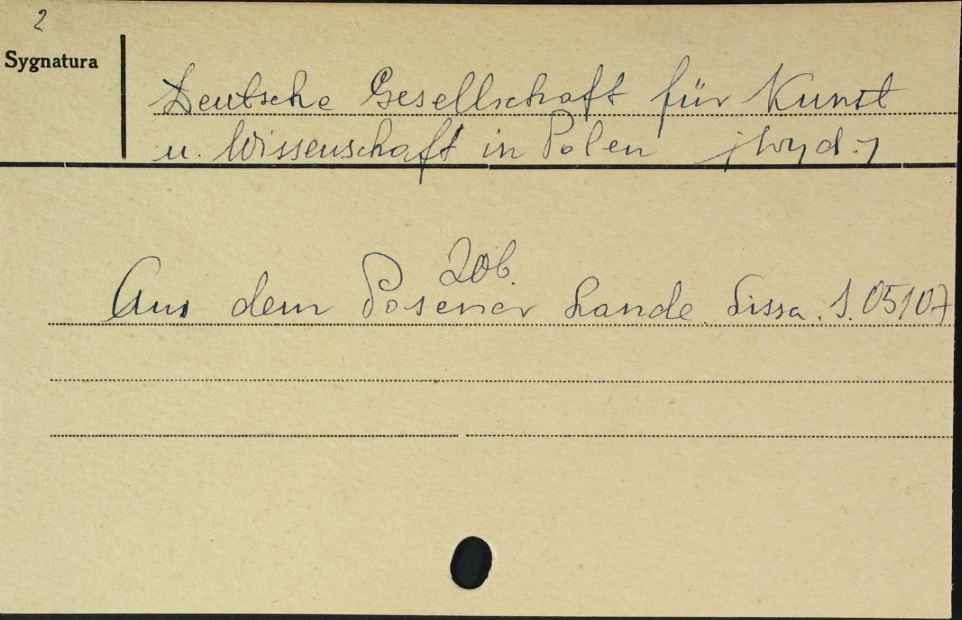 2
Sygnatura
Deutsche Gesellschaft für Kunst
u. Wissenschaft in Polen /wyd./
Zob.
Aus dem Posener Lande. Lissa. 1.05/07